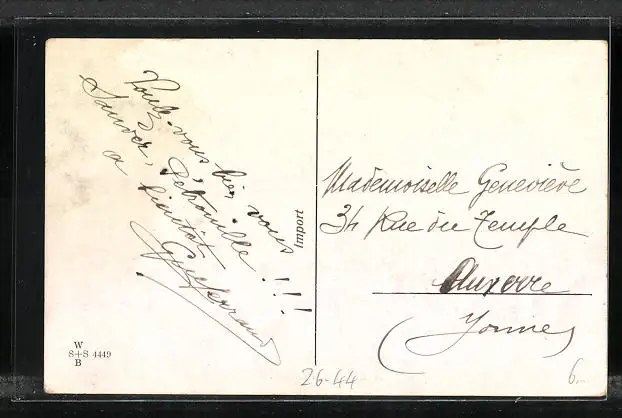 Voulez-vous bien vous
sauver, Petrouille !!!
à bientôt
Import
Mademoiselle Geneviève
34 Rue du Temple
Auxerre
(Yonne)
W
S+S 4449
B
26-44
6.-